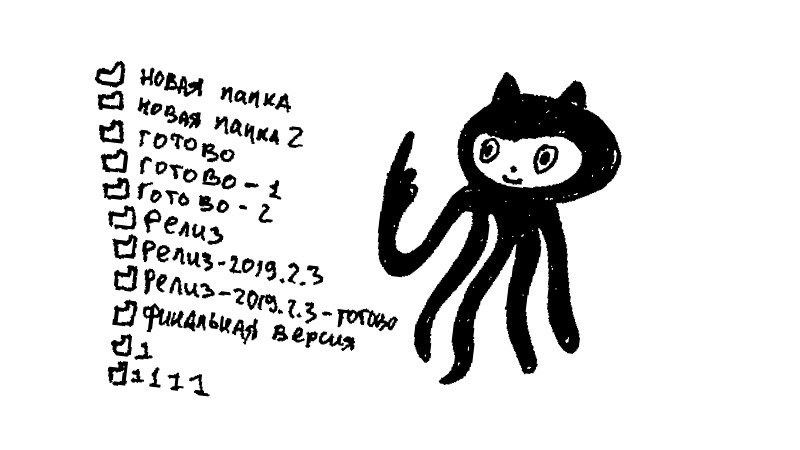 новая папка
новая папка 2
готово
готово-1
готово-2
Релиз
Релиз-2019.2.3
Релиз-2019.2.3-готово
финальная версия
1
1111